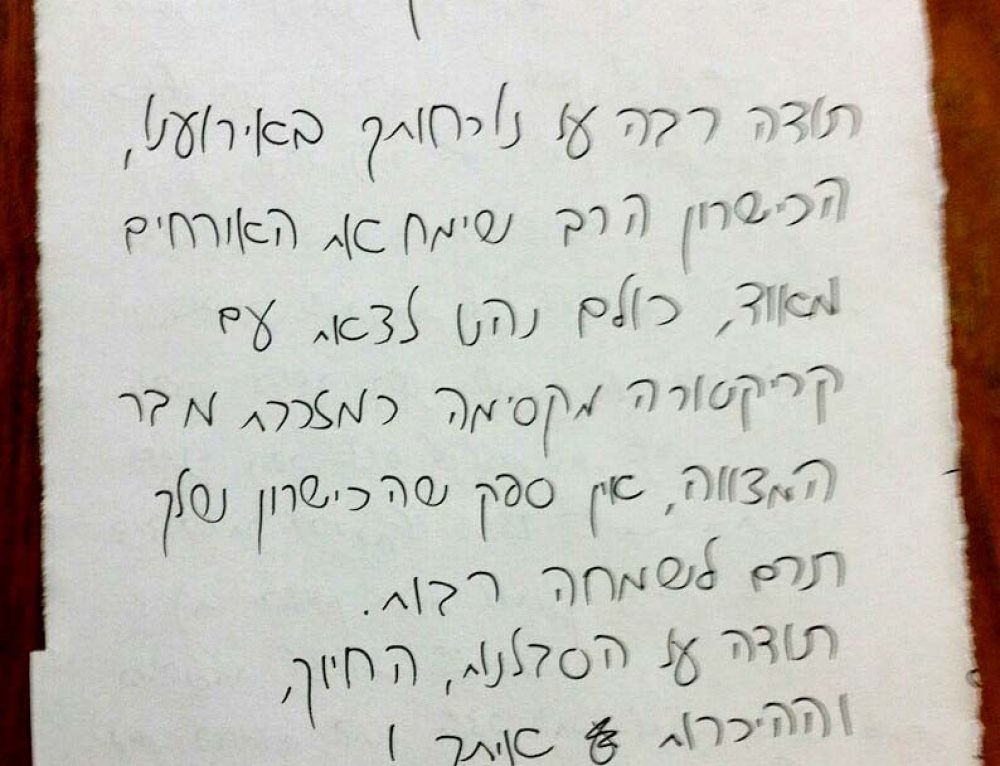 תודה רבה על נוכחותך באירוענו,
הכישרון הרב שימח את האורחים
מאוד, כולם נהנו לצאת עם
קריקטורה מקסימה כמזכרת מבר
המצווה, אין ספק שהכישרון שלך
תרם לשמחה רבות.
תודה על הסבלנות, החיוך,
וההיכרות איתך !